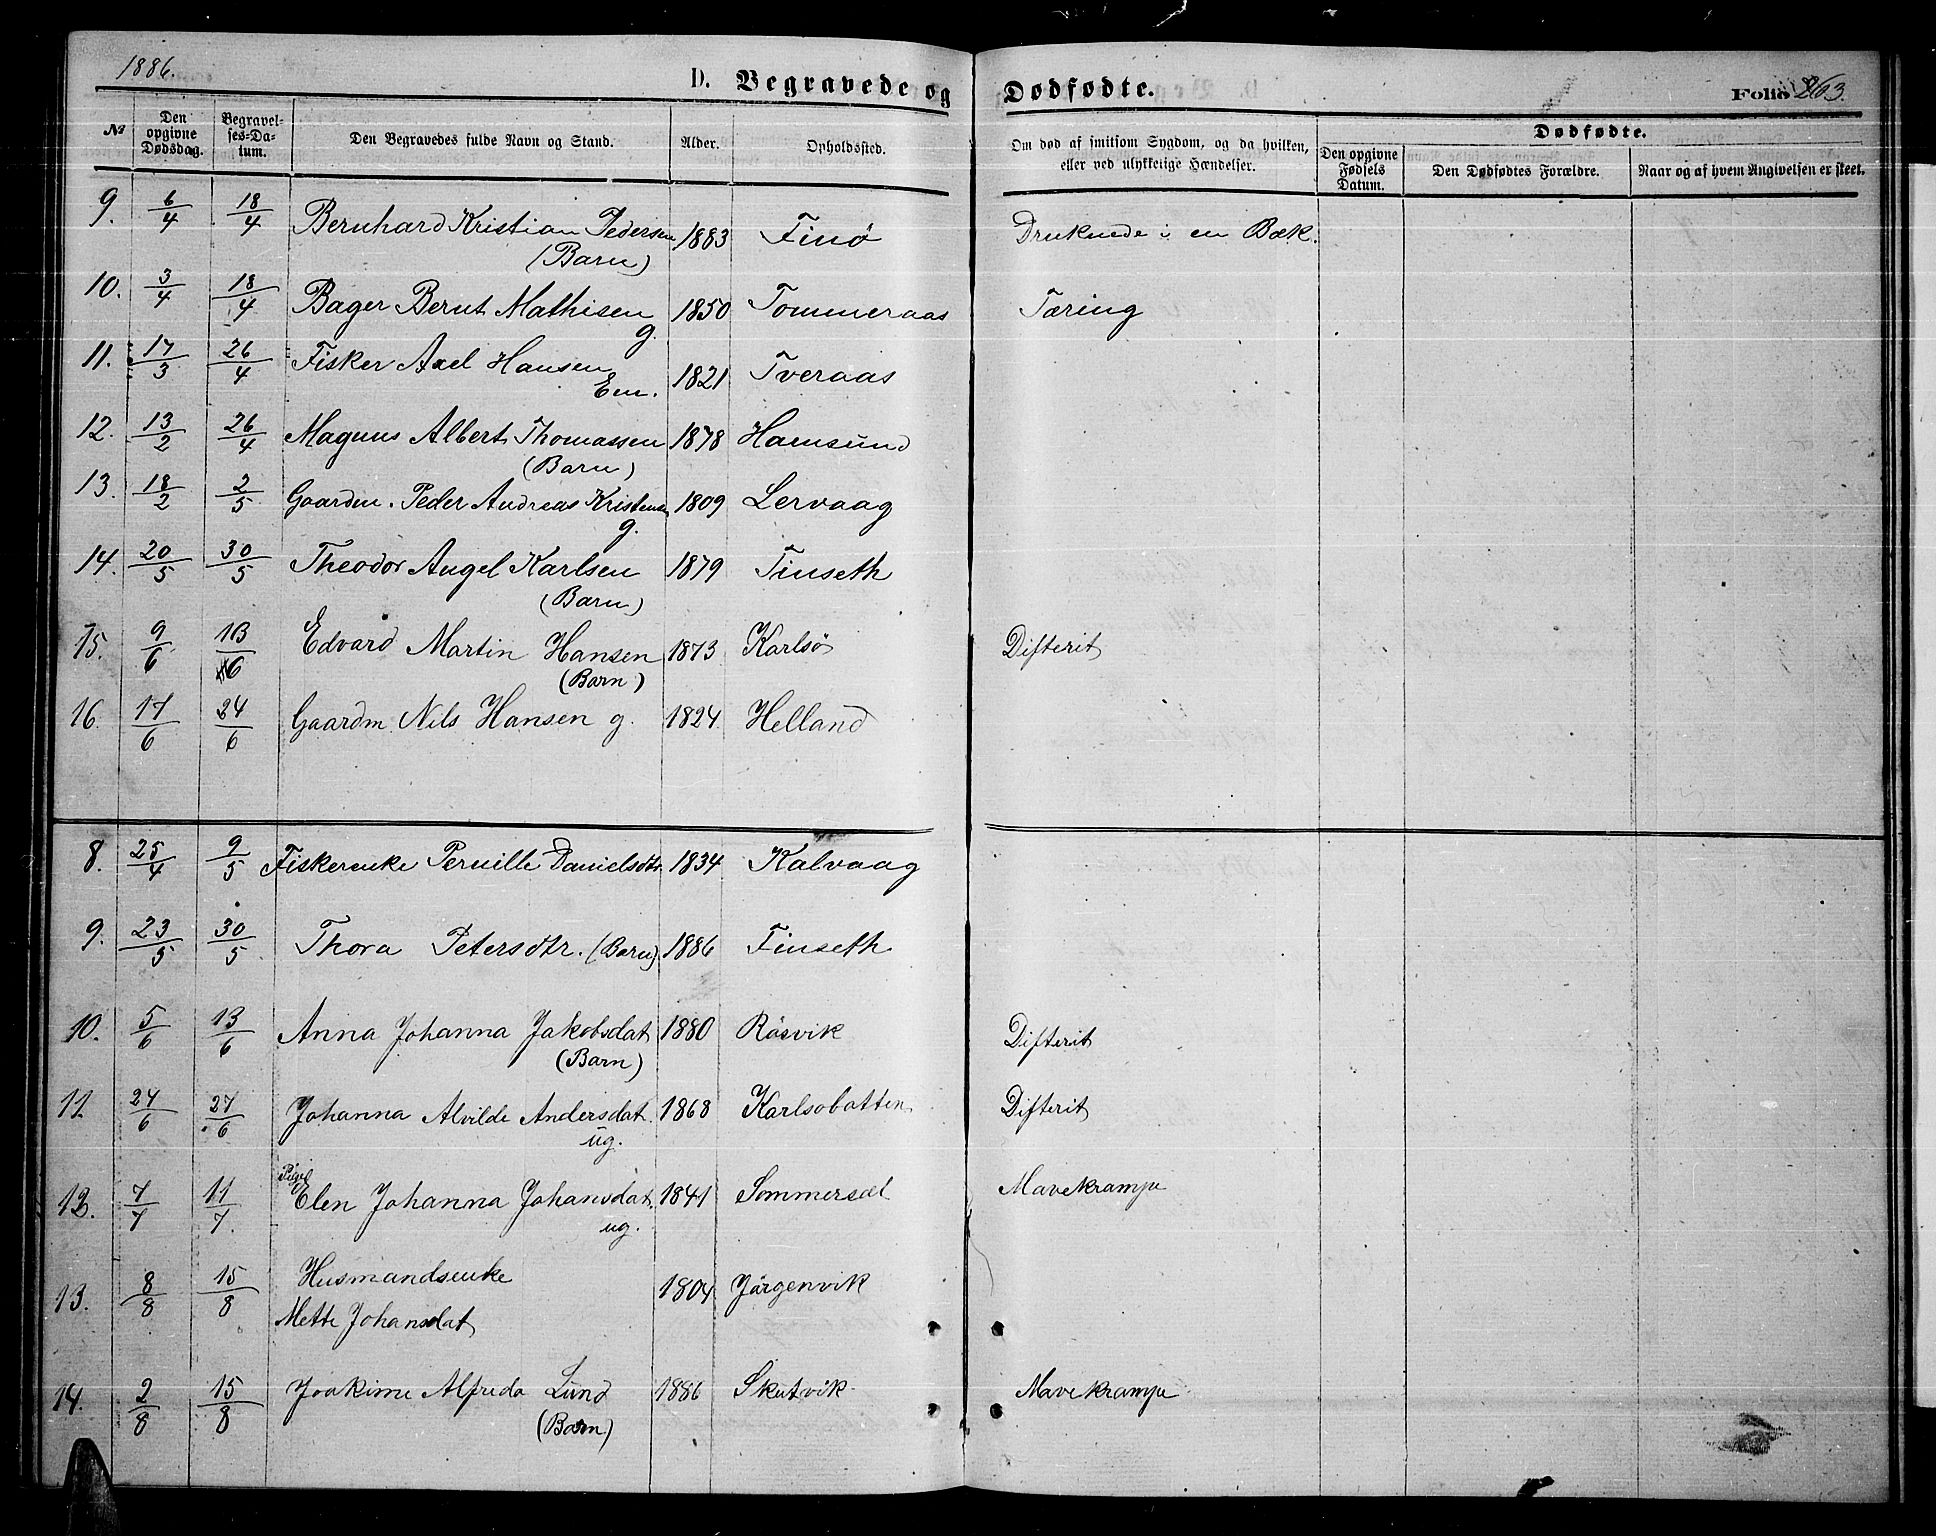 1886.
D. Begravede og Dødfødte. Folio 263.
№ Den opgivne Dødsdag. Begravelses-Datum. Den Begravedes fulde Navn og Stand. Alder. Opholdssted. Om død af smitsom Sygdom, og da hvilken, eller ved ulykkelige Hændelser. Dødfødte. Den opgivne Fødsels Datum. Den Dødfødtes Forældre. Naar og af hvem Angivelsen er skeet.
9. 6/4 18/4 Bernhard Kristian Pedersen 1883 Finø Druknede i en Bæk.
(Barn)
10. 3/4 18/4 Bager Bernt Mathisen 1850 Tommeraas Tæring
g.
11. 17/3 26/4 Fisker Axel Hansen 1821 Tveraas
Em.
12. 13/2 26/4 Magnus Albert Thomassen 1878 Hamsund
(Barn)
13. 18/2 2/5 Gaardm. Peder Andreas Kristensen 1809 Lervaag
g.
14. 20/5 30/5 Theodor Angel Karlsen 1879 Finseth
(Barn)
15. 9/6 13/6 Edvard Martin Hansen 1873 Karlsø Difterit
(Barn)
16. 17/6 24/6 Gaardm Nils Hansen g. 1824 Helland
8. 25/4 9/5 Fiskerenke Pernille Danielsdtr. 1834 Kalvaag
9. 23/5 30/5 Thora Petersdtr. (Barn) 1886 Finseth
10. 5/6 13/6 Anna Johanna Jakobsdat 1880 Røsvik Difterit
(Barn)
11. 24/6 27/6 Johanna Alvilde Andersdat. 1868 Karlsøbotten Difterit
ug.
12. 7/7 11/7. Pige Elen Johanna Johansdat. 1841 Sommersæt Mavekrampe
ug.
13. 8/8 15/8 Husmandsenke 1804 Jørgenvik
Mette Johansdat
14. 2/8 15/8 Joakime Alfreda Lund 1886 Skutvik Mavekrampe
(Barn)